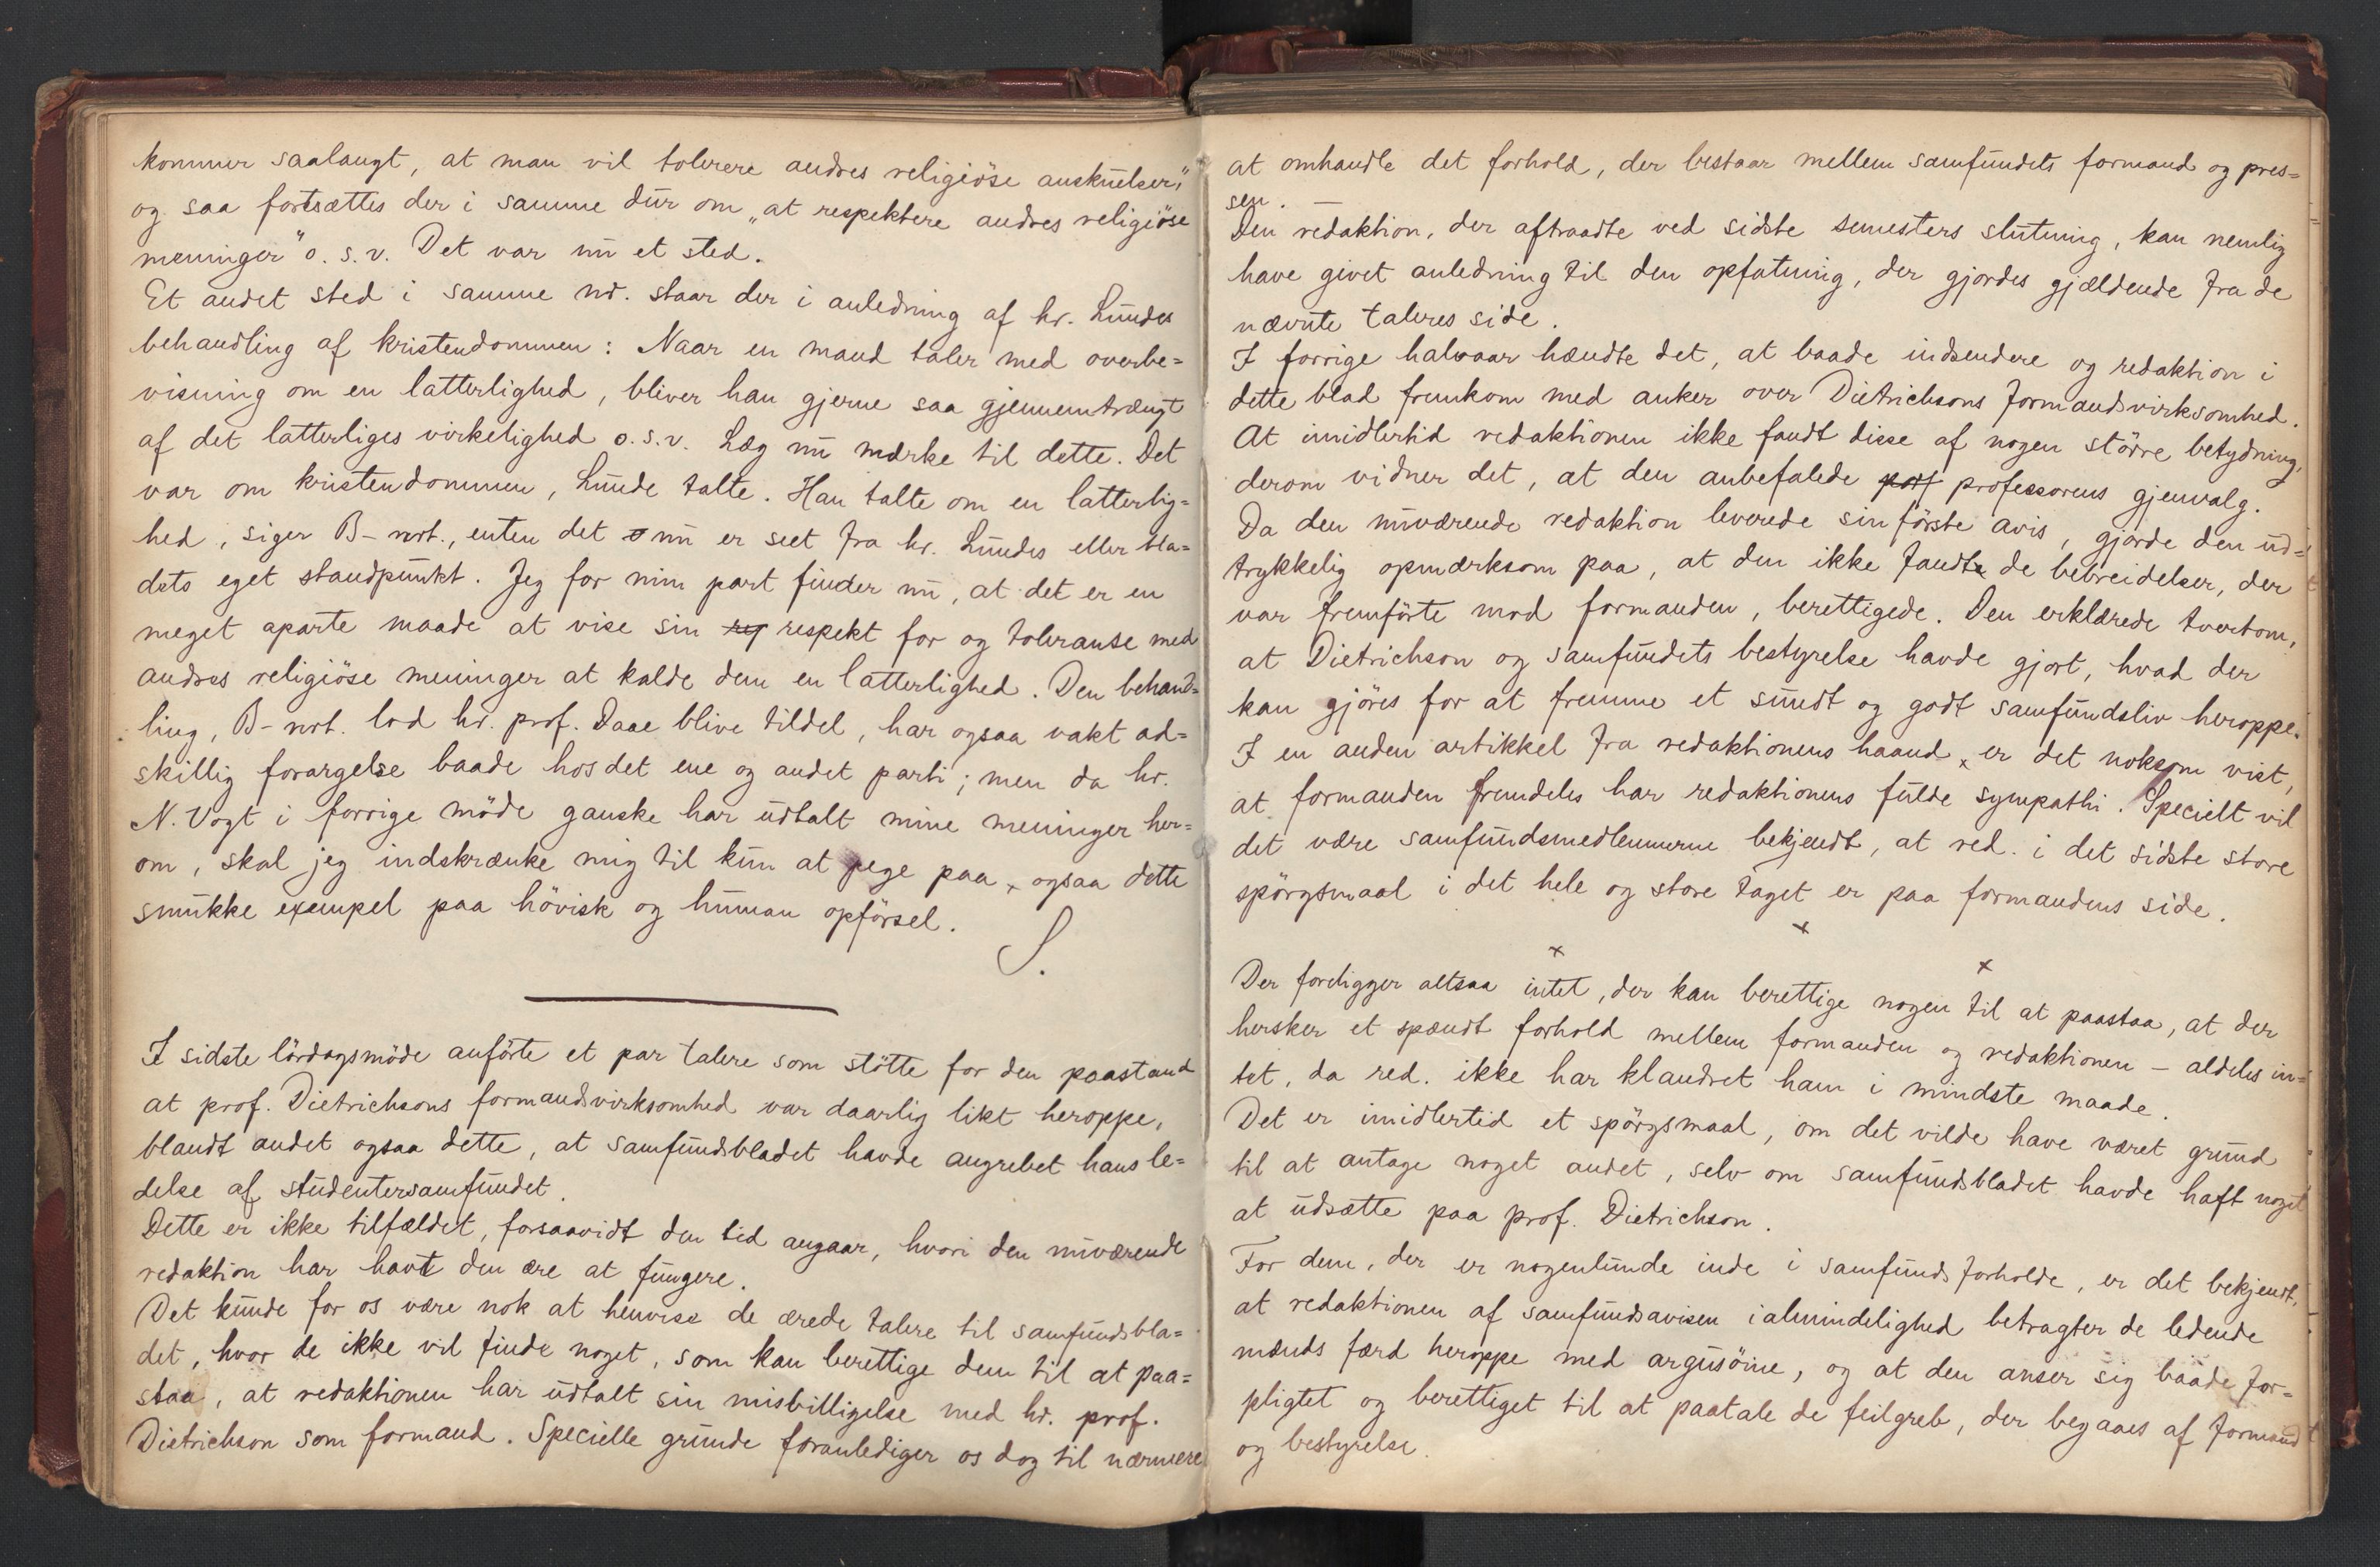 kommer saalangt, at man vil tolerere andres religiöse anskuelser,"
og saa fortsættes der i samme dur om „at respektere andres religiöse
meninger" o. s. v. Det var nu et sted.
Et andet sted i samme nr. staar der i anledning af hr. Lundes
behandling af kristendommen: Naar en mand taler med overbe=
visning om en latterlighed, bliver han gjerne saa gjennemtrængt
af det latterliges virkelighed o.s.v. Læg nu mærke til dette. Det
var om kristendommen, Lunde talte. Han talte om en latterlig=
hed, siger B-nrt., enten det nu er seet fra hr. Lundes eller bla=
dets eget standpunkt. Jeg for min part finder nu, at det er en
meget aparte maade at vise sin rep respekt for og toleranse med
andres religiöse meninger at kalde dem en latterlighed. Den behand=
ling, B-nrt. lod hr. prof. Daae blive tildel, har ogsaa vakt ad=
skillig forargelse baade hos det ene og andet parti; men da hr.
N. Vogt i forrige möde ganske har udtalt mine meninger her=
om, skal jeg indskrænke mig til kun at pege paa x ogsaa dette
smukke exempel paa hövisk og human opförsel.
S.
I sidste lördagsmöde anförte et par talere som stötte for den paastand
at prof. Dietrichsons formandsvirksomhed var daarlig likt heroppe,
blandt andet ogsaa dette, at samfundsbladet havde angrebet hans le=
delse af studentersamfundet.
Dette er ikke tilfældet, forsaavidt den tid angaar, hvori den nuværende
redaktion har havt den ære at fungere.
Det kunde for os være nok at henvise de ærede talere til samfundsbla=
det, hvor de ikke vil finde noget, som kan berettige dem til at paa=
staa, at redaktionen har udtalt sin misbilligelse med hr. prof.
Dietrichson som formand. Specielle grunde foranlediger os dog til nærmere
at omhandle det forhold, der bestaar mellem samfundets formand og pres=
sen. —
Den redaktion, der aftraadte ved sidste semesters slutning, kan nemlig
have givet anledning til den opfatning, der gjordes gjældende fra de
nævnte taleres side.
I forrige halvaar hændte det, at baade indsendere og redaktion i
dette blad fremkom med anker over Dietrichsons formandsvirksomhed.
At imidlertid redaktionen ikke fandt disse af nogen större betydning,
derom vidner det, at den anbefalede prof professorens gjenvalg.
Da den nuværende redaktion leverede sin förste avis, gjorde den ud=
trykkelig opmærksom paa, at den ikke fandt de bebreidelser, der
var fremförte mod formanden, berettigede. Den erklærede tvertom,
at Dietrichson og samfundets bestyrelse havde gjort, hvad der
kan gjöres for at fremme et sundt og godt samfundsliv heroppe.
I en anden artikkel fra redaktionens haand x er det noksom vist,
at formanden fremdeles har redaktionens fulde sympathi. Specielt vil
det være samfundsmedlemmerne bekjendt, at red. i det sidste store
spörgsmaal i det hele og store taget er paa formandens side.
x
x x
Der foreligger altsaa intet, der kan berettige nogen til at paastaa, at der
hersker et spændt forhold mellem formanden og redaktionen – aldeles in=
tet, da red. ikke har klandret ham i mindste maade.
Det er imidlertid et spörgsmaal, om det vilde have været grund
til at antage noget andet, selv om samfundsbladet havde haft noget
at udsætte paa prof. Dietrichson.
For dem, der er nogenlunde inde i samfundsforholde, er det bekjendt,
at redaktionen af samfundsavisen ialmindelighed betragter de ledende
mænds færd heroppe med argusöine, og at den anser sig baade for=
pligtet og berettiget til at paatale de feilgreb, der begaaes af formand
og bestyrelse.